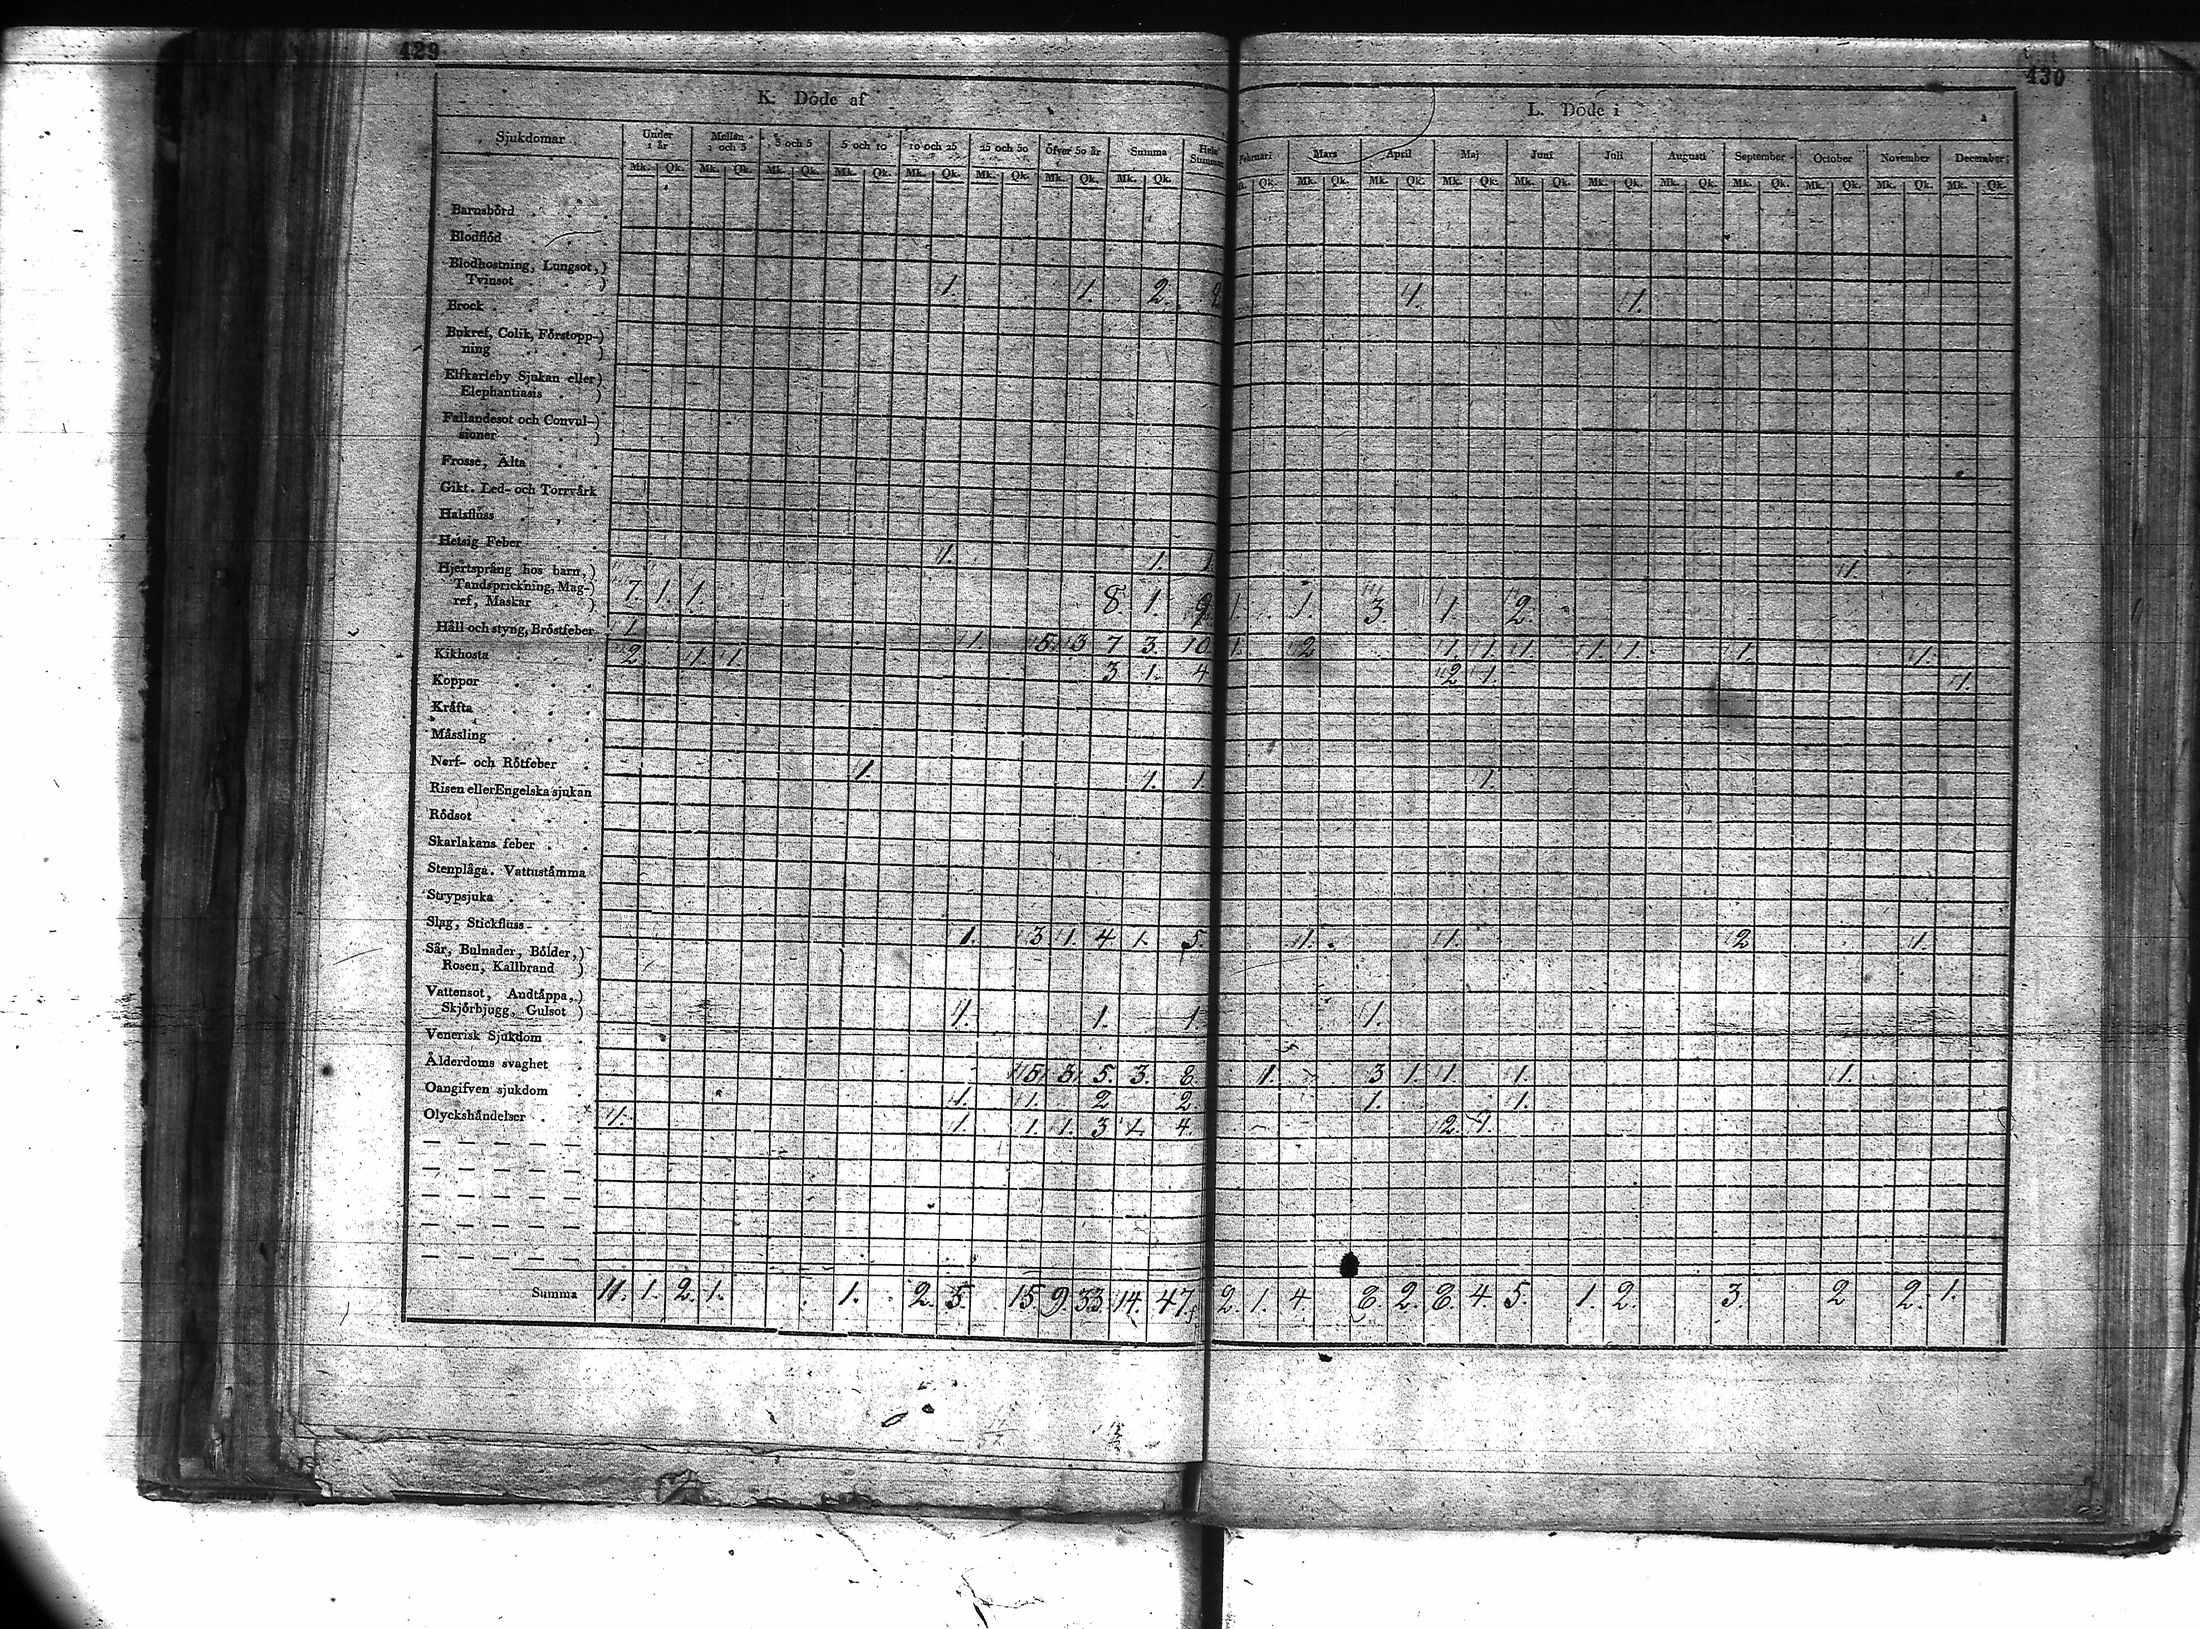 429
430
K. Döde af
L. Döde i
Sjukdomar Under 1 år Mellan 1 och 3 3 och 5 5 och 10 10 och 25 25 och 50 Öfver 50 år Summa Hela Summan Februari Mars April Maj Juni Juli Augusti September October November December
Mk. Qk. Mk. Qk. Mk. Qk. Mk. Qk. Mk. Qk. Mk. Qk. Mk. Qk. Mk. Qk. Mk. Qk. Mk. Qk. Mk. Qk. Mk. Qk. Mk. Qk. Mk. Qk. Mk. Qk. Mk. Qk. Mk. Qk. Mk. Qk. Mk. Qk.
Barnsbörd
Blodflöd
Blodhostning, Lungsot,
Tvinsot 1. 1. 2. 1. 1.
Brock
Bukref, Colik, Förstopp-
ning
Elfkarleby Sjukan eller
Elephantiasis
Fallandesot och Convul-
sioner
Frosse, Älta
Gikt. Led- och Torrvärk
Halsfluss
Hetsig Feber 1. 1. 1. 1.
Hjertsprång hos barn,
Tandsprickning, Mag-
ref, Maskar 7. 1. 1. 8. 1. 9. 1. 1. 3. 1. 2.
Håll och styng, Bröstfeber 1. 1. 5. 3 7 3. 10. 1. 2 1. 1. 1. 1. 1. 1. 1.
Kikhosta 2 1. 1 3 1. 4 2 1. 1.
Koppor
Kräfta
Mässling
Nerf- och Rötfeber 1. 1. 1. 1.
Risen eller Engelska sjukan
Rödsot
Skarlakans feber
Stenplåga. Vattustämma
Strypsjuka
Slag, Stickfluss 1. 3 1. 4 1. 5 1. 1. 2 1.
Sår, Bulnader, Bölder,
Rosen, Kallbrand
Vattensot, Andtäppa,
Skjörbjugg, Gulsot 1. 1. 1. 1.
Venerisk Sjukdom
Ålderdoms svaghet 5 3 5. 3. 8 1. 3 1. 1. 1. 1.
Oangifven sjukdom 1. 1. 2 2. 1. 1.
Olyckshändelser 1. 1. 1. 1. 3 1. 4. 2. 1.
Summa 11. 1. 2. 1. 1. 2. 5. 15. 9. 33. 14. 47. 2. 1. 4. 8. 2. 8. 4. 5. 1. 2. 3. 2 2. 1.